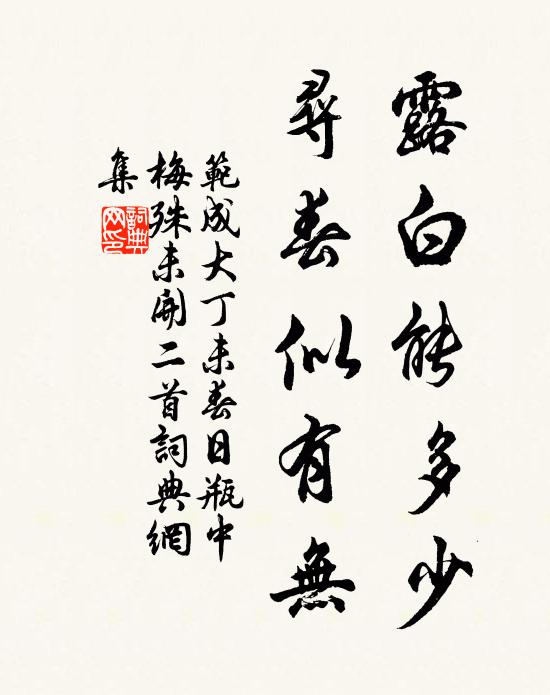 露白能多少
尋春似有無
範成大丁未春日瓶中
梅殊未開二首詞典網
集
詞典
网印